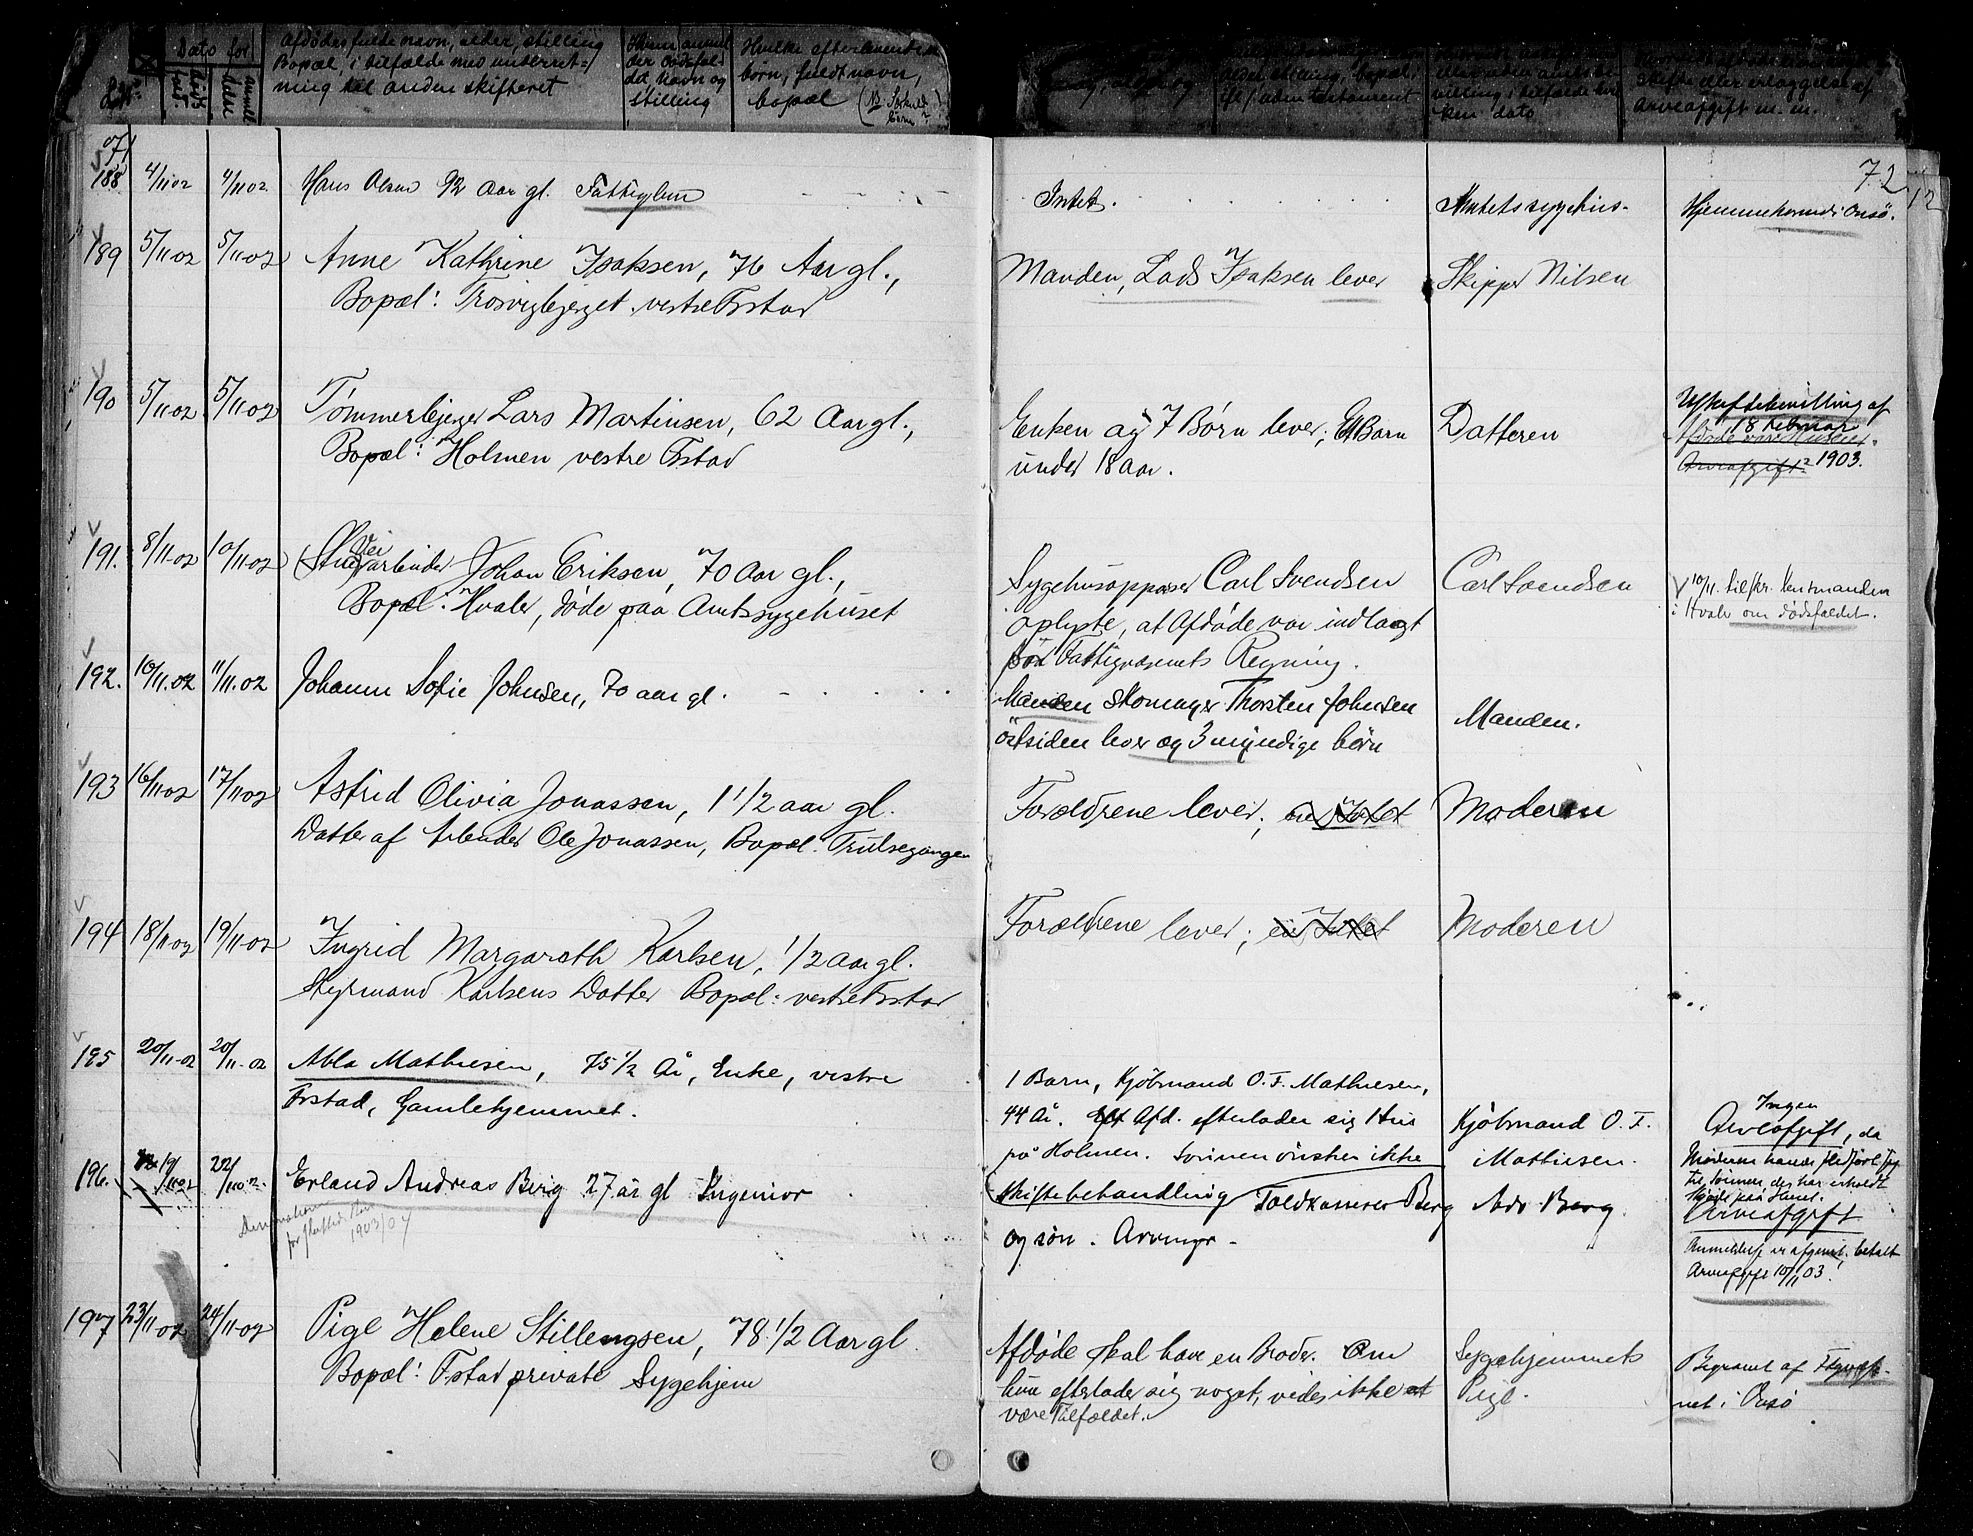 Dato for
Afdødes fulde navn, alder, stilling
Bopæl, i tilfælde med underret-
ning til anden skifteret
der dødsfal-
det Navn og
stilling
Hvilke efterlevende
børn, fuldt navn,
bopæl
alder, stilling, bopæl
villing i tilfælde
ken dato
skifte eller erlæggelse af
Arveafgift m. m.
71
72
188 4/11 02 4/11 02 Hans Olsen 92 Aar gl. Fattiglem
Intet. Amtets sygehus. Hjemmehørende i Onsø.
189 5/11-02 5/11-02 Anne Kathrine Isaksen, 76 Aar gl.,
Bopæl: Trosvigbjerget vestre Fstad
Manden, Lads Isaksen lever Skipper Nilsen
190 5/11-02 5/11-02 Tømmerbjerger Lars Martinsen, 62 Aar gl.,
Bopæl: Holmen vestre Fstad
Enken og 7 Børn lever; Et Barn
under 18 aar.
Datteren
Uskiftebevilling af
18 Februar
Arveafgift? 1903.
191. 8/11-02 10/11-02 Veiarbeider Johan Eriksen, 70 Aar gl.,
Bopæl: Hvaler, døde paa Amtssygehuset
Sygehusopppasser Carl Svendsen
oplyste, at Afdøde var indlagt
for Fattigvæsenets Regning.
Carl Svendsen
10/11. tilskr. Lensmanden
i Hvaler om dødsfaldet.
192. 10/11.02 11/11.02 Johanne Sofie Johnsen, 70 aar gl.
Manden Skomager Thorsten Johnsen
østsiden lever og 3 myndige børn
Manden.
193 16/11 02 17/11-02 Astrid Olivia Jonassen, 1 1/2 aar gl.
Datter af Arbeider Ole Jonassen, Bopæl: Trulsegangen
Forældrene lever; ei Intet Moderen
194 18/11 02 19/11-02 Ingrid Margareth Karlsen, 1/2 Aar gl.
Styrmand Karlsens Datter Bopæl: vestre Fstad
Forældrene lever; ei Intet Moderen
195 20/11-02 20/11-02 Abla Mathiesen, 75 1/2 År, Enke, vestre
Fstad, Gamlehjemmet.
1 Barn, Kjøbmand O. F. Mathiesen,
44 År. Afd. efterlader sig Hus
på Holmen. Sønnen ønsker ikke
skiftebehandling
Kjøbmand O. F.
Mathiesen.
Ingen
Arveafgift, da
Moderen havde
til Sønnen, der har erholdt
Skjøde paa Huset.
196. 19/11 02 22/11 02 Erland Andreas Berg 27 år gl Ingeniør
1903/04
Toldkasserer Berg
og søn. Arvinger.
Adv Berg.
Arveafgift
Anmeldelse er afgivet, betalt
Arveafgift 10/11 03.
197 23/11-02 24/11-02 Pige Helene Stillengsen, 78 1/2 Aar gl.
Bopæl: Fstad private Sygehjem
Afdøde skal have en Broder. Om
hun efterlader sig noget, vides ikke at
være Tilfældet.
Sygehjemmets
Pige.
Begravet af Fgvæse-
net i Onsø